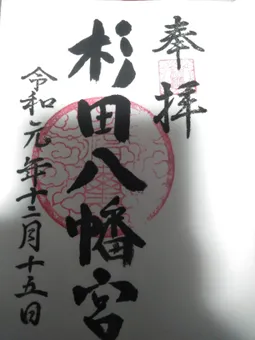 奉拝
杉田八幡宮
令和元年十二月十五日